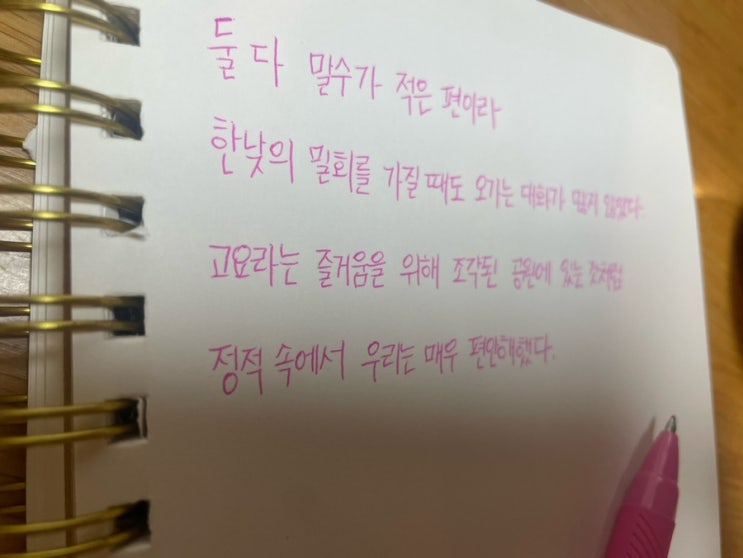 둘 다 말수가 적은 편이라
한낮의 밀회를 가질 때도 오가는 대화가 많지 않았다.
고요라는 즐거움을 위해 조각된 공원에 있는 것처럼
정적 속에서 우리는 매우 편안해했다.